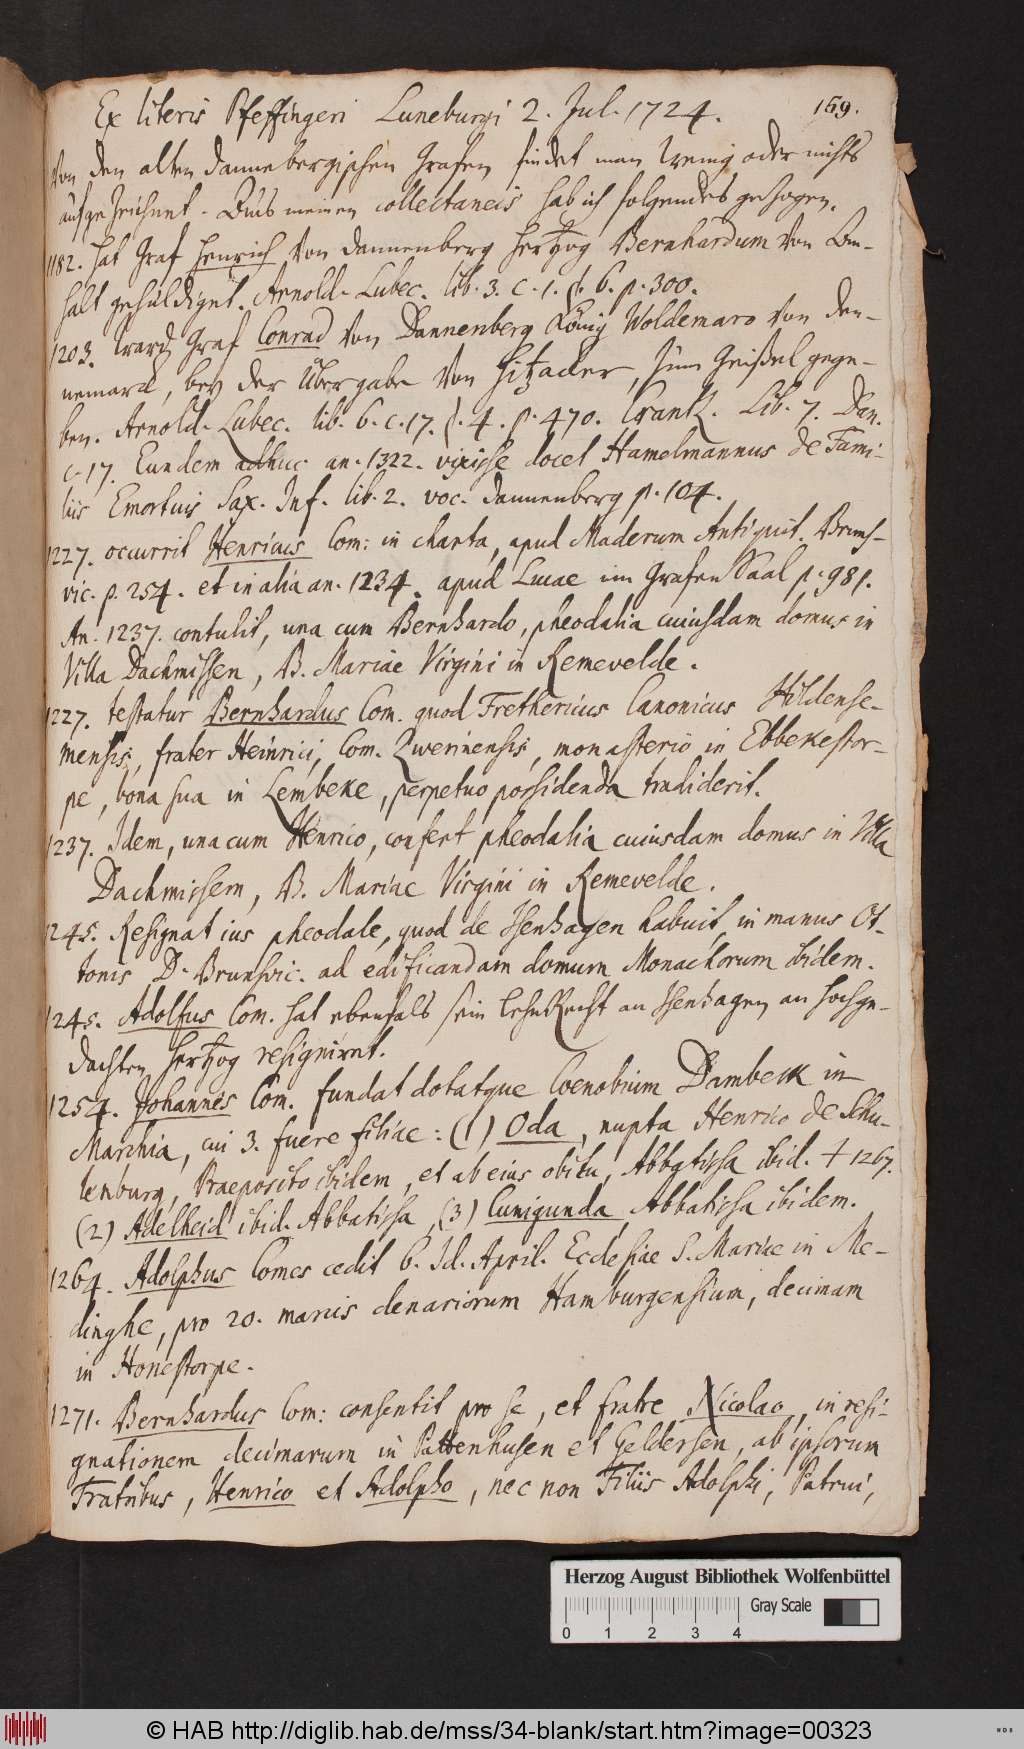 159.
Ex literis Pfeffingeri Luneburgi 2. Jul. 1724.
Von den alten dannebergischen Grafen findet man wenig oder nichts
aufgezeichnet. Aus meinen collectaneis hab ich folgendes gezogen.
1182. hat Graf Henrich von dannenberg Hertzog Bernhardum von An-
halt gehuldiget. Arnold. Lubec. lib. 3. c. 1. §. 6. p. 300.
1203. ward Graf Conrad von Dannenberg König Woldemaro von den-
nemarck, bey der Übergabe von Hitzacker, zum Geißel gege-
ben. Arnold. Lubec. lib. 6. c. 17. §. 4. p. 470. Crantz. Lib. 7. Dan.
c. 17. Eundem adhuc an. 1322. vixisse docet Hamelmannus de Fami-
liis Emortuis Sax. Inf. lib. 2. voc. dannenberg p. 104.
1227. occurrit Henricus Com: in charta, apud Maderum Antiquit. Bruns-
vic. p. 254. et in alia an. 1234. apud Lucae im Grafen Saal p. 981.
An. 1237. contulit, una cum Bernhardo, pheodalia cuiusdam domus in
Villa Dachmissen, B. Mariae Virgini in Remevelde.
1227. testatur Bernhardus Com. quod Frethericus Canonicus Hildense-
mensis, frater Heinrici, Com. Zwerinensis, monasterio in Ebbekestor-
pe, bona sua in Lembeke, perpetuo possidenda tradiderit.
1237. Idem, una cum Henrico, confert pheodalia cuiusdam domus in Villa
Dachmissem, B. Mariae Virgini in Remevelde.
1245. Resignat ius pheodale, quod de Isenhagen habuit, in manus Ot-
tonis D. Brunsvic. ad edificandam domum Monachorum ibidem.
1245. Adolfus Com. hat ebenfals sein LehnRecht an Isenhagen an hochge-
dachten Hertzog resigniret.
1254. Johannes Com. fundat dotatque Coenobium Dambeck in
Marchia, cui 3. fuere filiae: (1) Oda, nupta Henrico de Schu-
lenburg, Praeposito ibidem, et ab eius obitu, Abbatissa ibid. † 1267.
(2) Adelheid ibid. Abbatissa, (3) Cunigunda, Abbatissa ibidem.
1264. Adolphus Comes cedit 6. Id. April. Ecclesiae S. Mariae in Me-
dinghe, pro 20. marcis denariorum Hamburgensium, decimam
in Honestorpe.
1271. Bernhardus Com: consentit pro se, et fratre Nicolao, in resi-
gnationem decimarum in Pattenhusen et Geldersen, ab ipsorum
Fratribus, Henrico et Adolpho, nec non Filiis Adolphi, Patrui,
Herzog August Bibliothek Wolfenbüttel
Gray Scale
0 1 2 3 4
© HAB http://diglib.hab.de/mss/34-blank/start.htm?image=00323